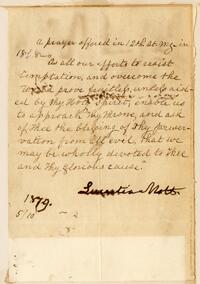 a prayer offered in 12th st. Mg. in
As all our efforts to resist
temptation, and overcome the
world prove fruitless, unless aid-
ed by Thy Holy Spirit, enable us
to approach Thy Throne, and ask
of Thee the blessing of Thy preser-
vation from all evil, that we
may be wholly devoted to Thee
and Thy glorious cause"
Lucretia Mott
1879.
5/10